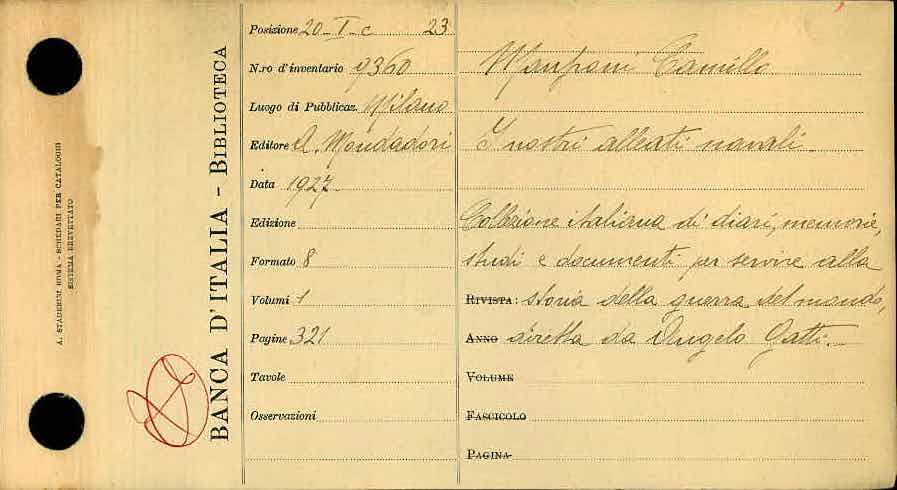 A. STADERINI ROMA - SCHEDARI PER CATALOGHI
SISTEMA BREVETTATO
BANCA D'ITALIA - BIBLIOTECA
Posizione 20-I-c 23
N.ro d'inventario 9360
Luogo di Pubblicaz. Milano
Editore A. Mondadori
Data 1927
Edizione
Formato 8
Volumi 1
Pagine 321
Tavole
Osservazioni
Manfroni Camillo
I nostri alleati navali
Collezione italiana di diari, memorie,
studi e documenti per servire alla
RIVISTA: storia della guerra del mondo,
ANNO diretta da Angelo Gatti.
VOLUME
FASCICOLO
PAGINA